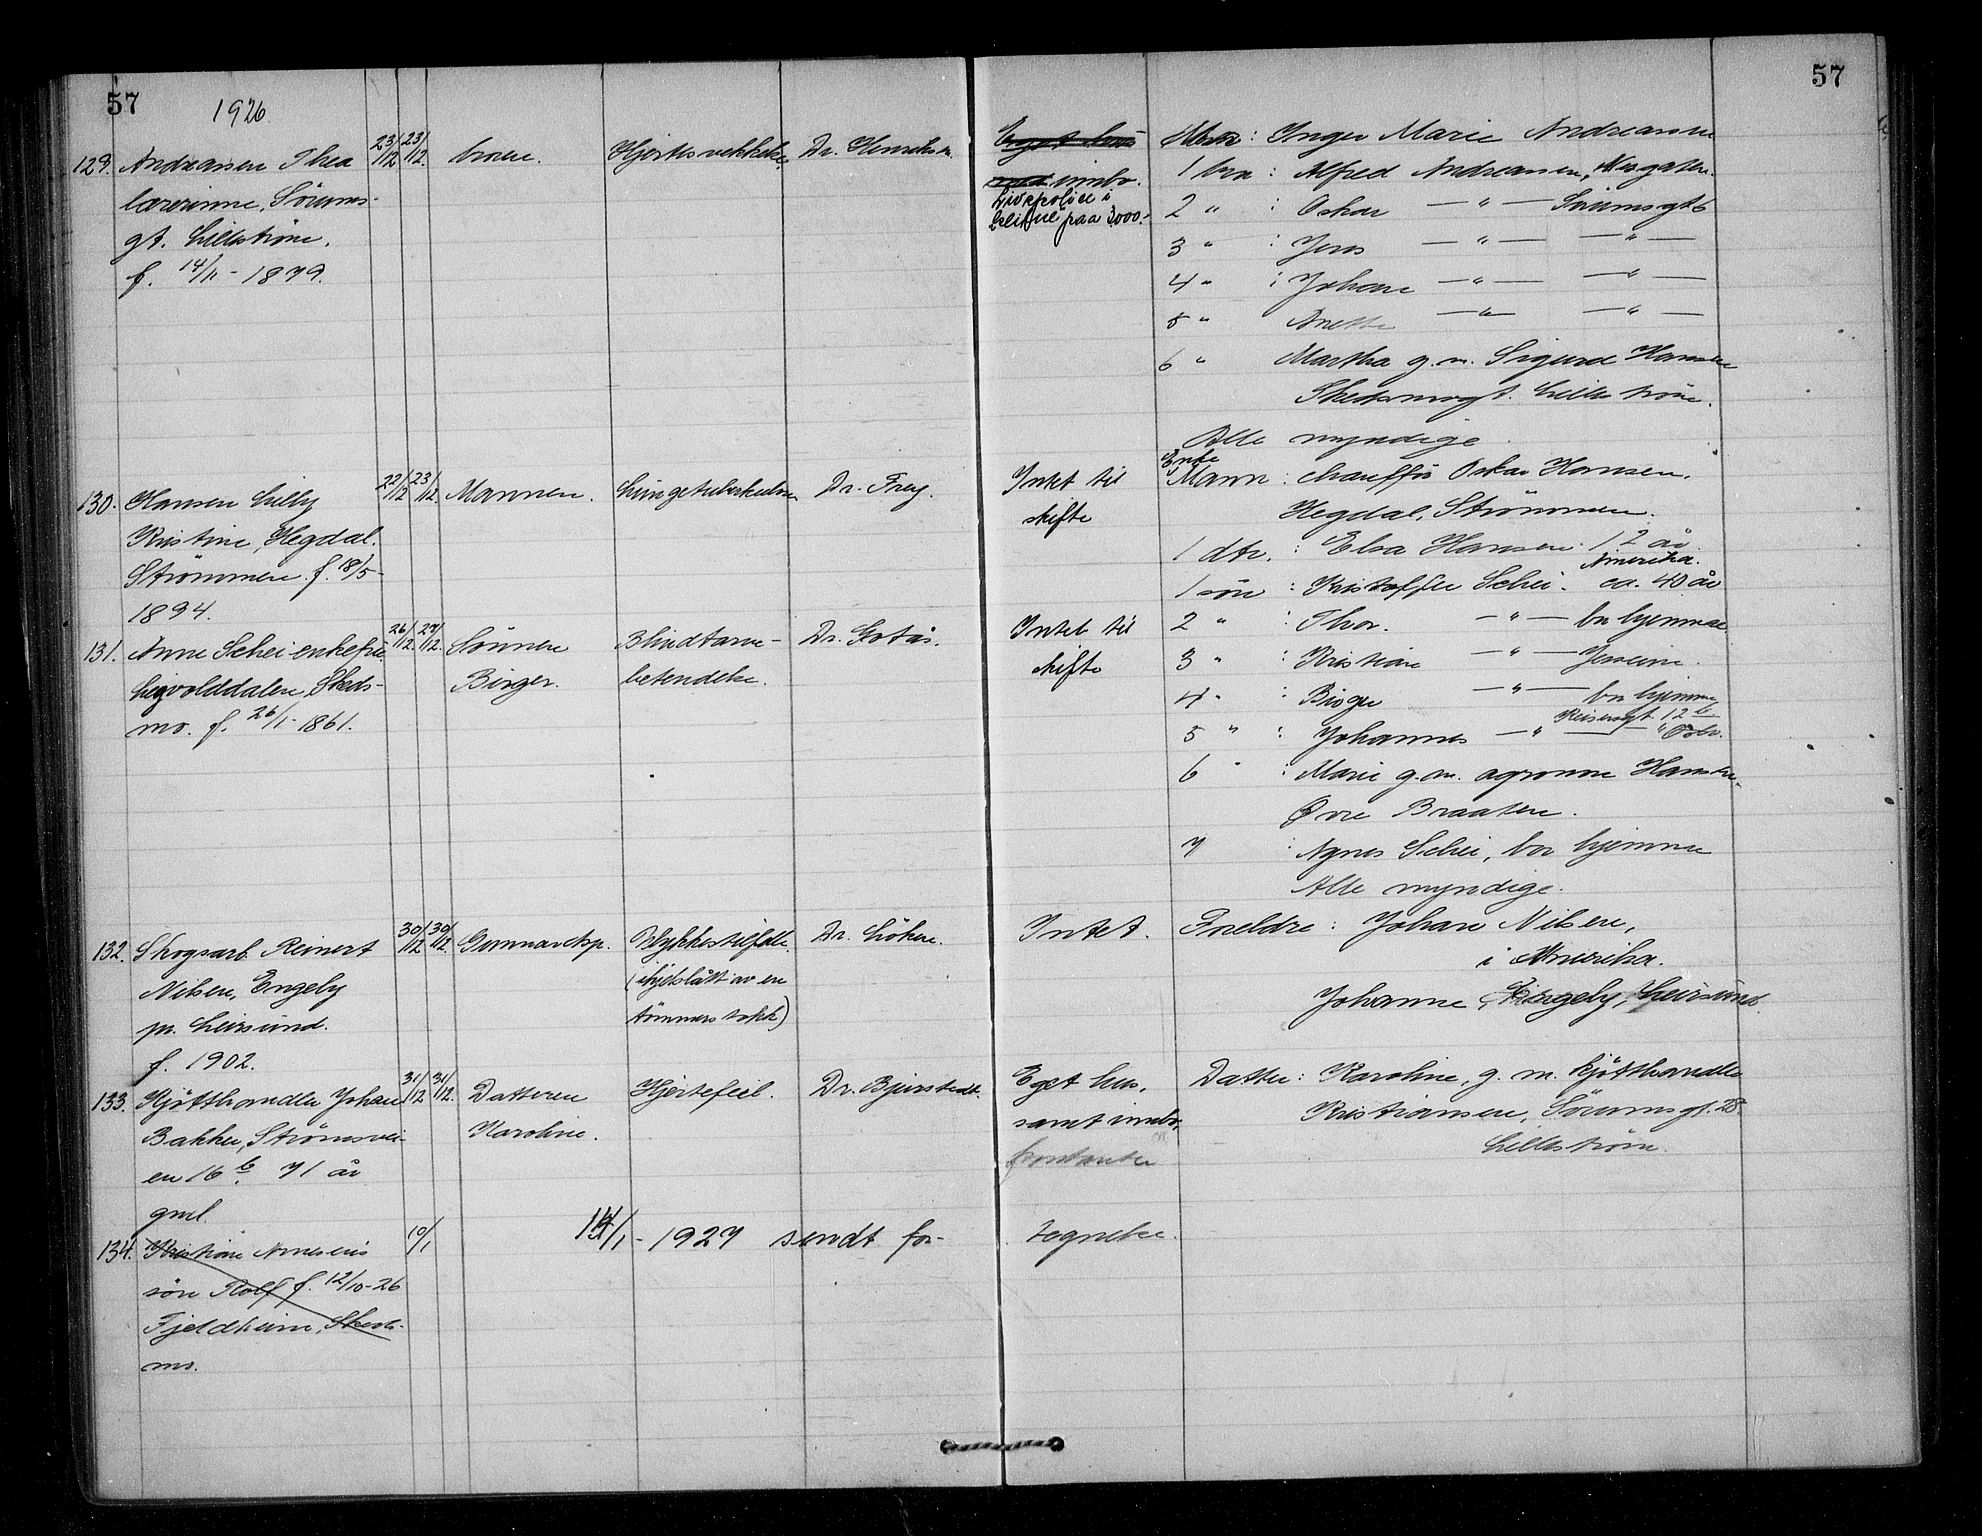 57
1926.
57
129. Andreassen Thea
lærerinne, Sörums-
gt. Lillestrøm.
f. 14/11 - 1879.
23/12 23/12.
broren.
Hjertesvekkelse,
Dr. Henriksen.
Eget hus
med innbo.
Livspolice i
paa 3000.-
Mor: Inger Marie Andreassen
1 bror : Alfred Andreassen, Nesgaten.
2 " : Oskar — " — Sörumsgt 6
3 " : Jens — " — — " —
4 " : Johan — " — — " —
5 " Anette — " — — " —
6 " Martha g.m. Sigurd Hansen
Skedsmogt. Lillestrøm.
Alle myndige.
130. Hansen Lilly
Kristine, Hegdal.
Strømmen. f. 18/5 -
1894.
22/12 23/12.
Mannen.
Lungetuberkulose
Dr. Frey.
Intet til
skifte
Enke
Mann : chauffør Oskar Hansen.
Hegdal, Strömmen.
1 dtr. : Elsa Hansen. 12 år.
131. Anne Schei enkefru
Legvolddalen, Skeds-
mo. f. 26/1 - 1861.
26/12. 27/12.
Sönnen
Birger.
Blindtarm-
betendelse.
Dr. Gotås.
Intet til
skifte
Amerika.
1 sön : Kristoffer Schei. ca. 40 år
2 " : Thor. — " — bor hjemme
3 " : Kristian — " —
4 " : Birger — " — bor hjemme
5 " : Johannes — " — " Oslo.
6 " : Marie g.m. agronom Hansen,
Øvre Braaten.
7 : Agnes Schei, bor hjemme
Alle myndige.
132. Skogsarb. Reinert
Nilsen, Engeby
pr. Leirsund.
f. 1902.
30/12 30/12.
Ulykkestilfelle.
(ihjelslått av en
tömmerstokk)
Dr. Löken.
Intet.
Foreldre : Johan Nilsen,
i Amerika.
Johanne, Engeby, Leirsund.
133. Kjøtthandler Johan
Bakken, Strömsvei-
en 16 b. 71 år
gml.
31/12 31/12.
Datteren
Karoline.
Hjertefeil.
Dr. Bjerstedt.
Eget hus,
samt innbo,
Datter : Karoline, g. m. kjøtthandler
Kristiansen, Sörumsgt. 28.
Lillestrøm.
134. Kristian Arnesens
sön Rolf f. 12/10-26
Fjeldheim, Skeds-
mo.
10/1
14/1 - 1927 sendt for-
tegnelse.